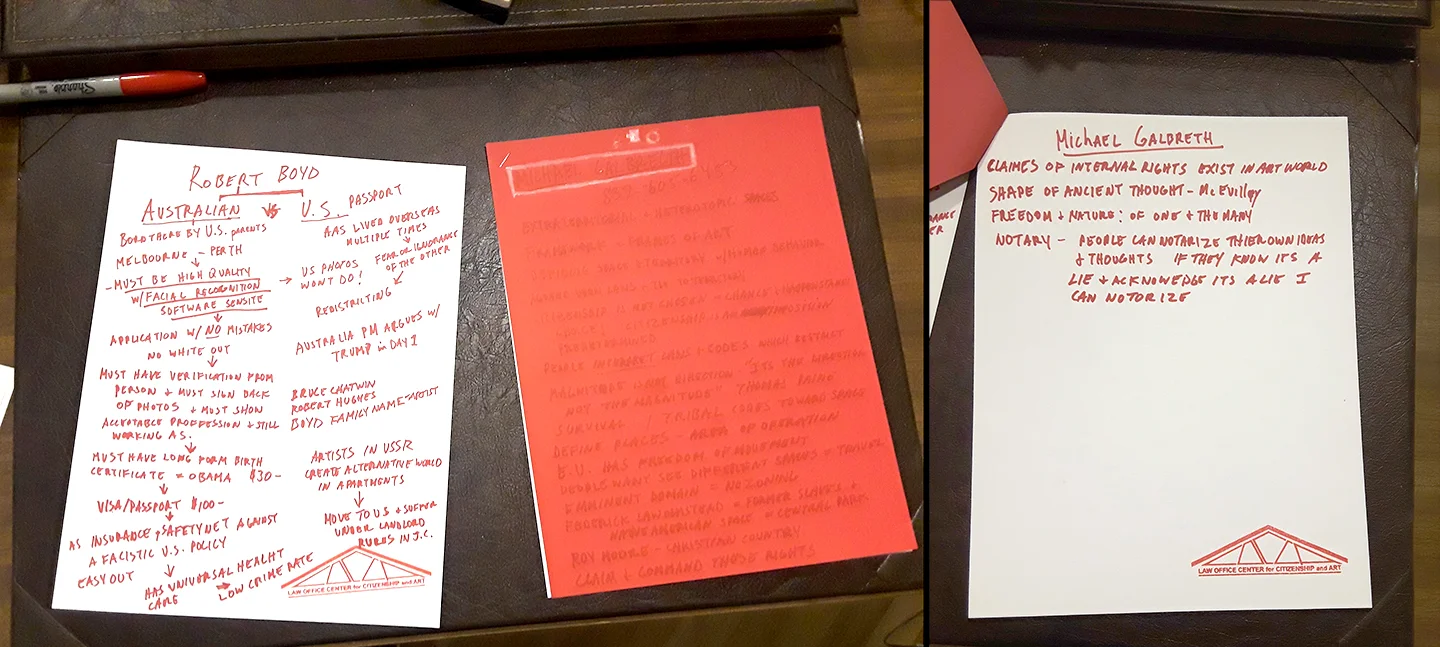 Sharpie
ROBERT BOYD
AUSTRALIAN VS U.S. PASSPORT
BORD THERE BY U.S. PARENTS
MELBOURNE - PERTH
- MUST BE HIGH QUALITY
W/ FACIAL RECOGNITION
SOFTWARE SENSITE
APPLICATION W/ NO MISTAKES
NO WHITE OUT
MUST HAVE VERIFICATION FROM
PERSON + MUST SIGN BACK
OF PHOTOS + MUST SHOW
ACCEPTABLE PROFFESSION + STILL
WORKING AS.
MUST HAVE LONG FORM BIRTH
CERTIFICATE = OBAMA $30-
VISA/PASSPORT $100-
AS INSURANCE + SAFETY NET AGAINST
A FACISTIC U.S. POLICY
EASY OUT
HAS UNIVERSAL HEALHT
CARE
LOW CRIME RATE
AAS LIVED OVERSEAS
MULTIPLE TIMES
FEAR OR IGNORANCE
OF THE OTHER
US PHOTOS
WONT DO!
REDISTRICTING
AUSTRALIA PM ARGUES W/
TRUMP in DAY 1
BRUCE CHATWIN
ROBERT HUGHES
BOYD FAMILY NAME - ARTIST
ARTISTS IN USSR
CREATE ALTERNATIVE WORLD
IN APARTMENTS
MOVE TO US + SUFFER
UNDER LANDLORD
RULES IN J.C.
LAW OFFICE CENTER for CITIZENSHIP and ART
MICHAEL GALBRETH
EXTRA + HETEROTOPIC SPACES
FRAMEWORK - FRAMES OF ART
DEFINING SPACE + TERRITORY W/ HUMAN BEHAVIOR
CITIZENSHIP IS NOT CHOSEN = CHANCE
CITIZENSHIP IS AN IMPOSITION
PREDETERMINED
PEOPLE INTERPRET LAWS + CODES WHICH RESTRICT
MAGNITUDE DIRECTION "ITS THE DIRECTION
NOT THE MAGNITUDE" THOMAS PAINE
SURVIVAL / TRIBAL CODES TOWARD SPACE
DEFINE PLACES - AREA OF OPERATION
E.U. HAS FREEDOM OF MOVEMENT
PEOPLE WANT SEE DIFFERENT SPACES = TRAVEL
EMMINENT DOMAIN = NO ZONING
FREDERICK LAW OLMSTEAD = FORMER SLAVES +
NATIVE AMERICAN SPACE = CENTRAL PARK
ROY MOORE - CHRISTIAN COUNTRY
CLAIM + COMMAND THOSE RIGHTS
MICHAEL GALBRETH
CLAIMES OF INTERNAL RIGHTS EXIST IN ART WORLD
SHAPE OF ANCIENT THOUGHT - McEvilley
FREEDOM + NATURE: OF ONE + THE MANY
NOTARY - PEOPLE CAN NOTARIZE THIER OWN IDEAS
+ THOUGHTS IF THEY KNOW ITS A
LIE + ACKNOWEDGE ITS A LIE I
CAN NOTORIZE
LAW OFFICE CENTER for CITIZENSHIP and ART